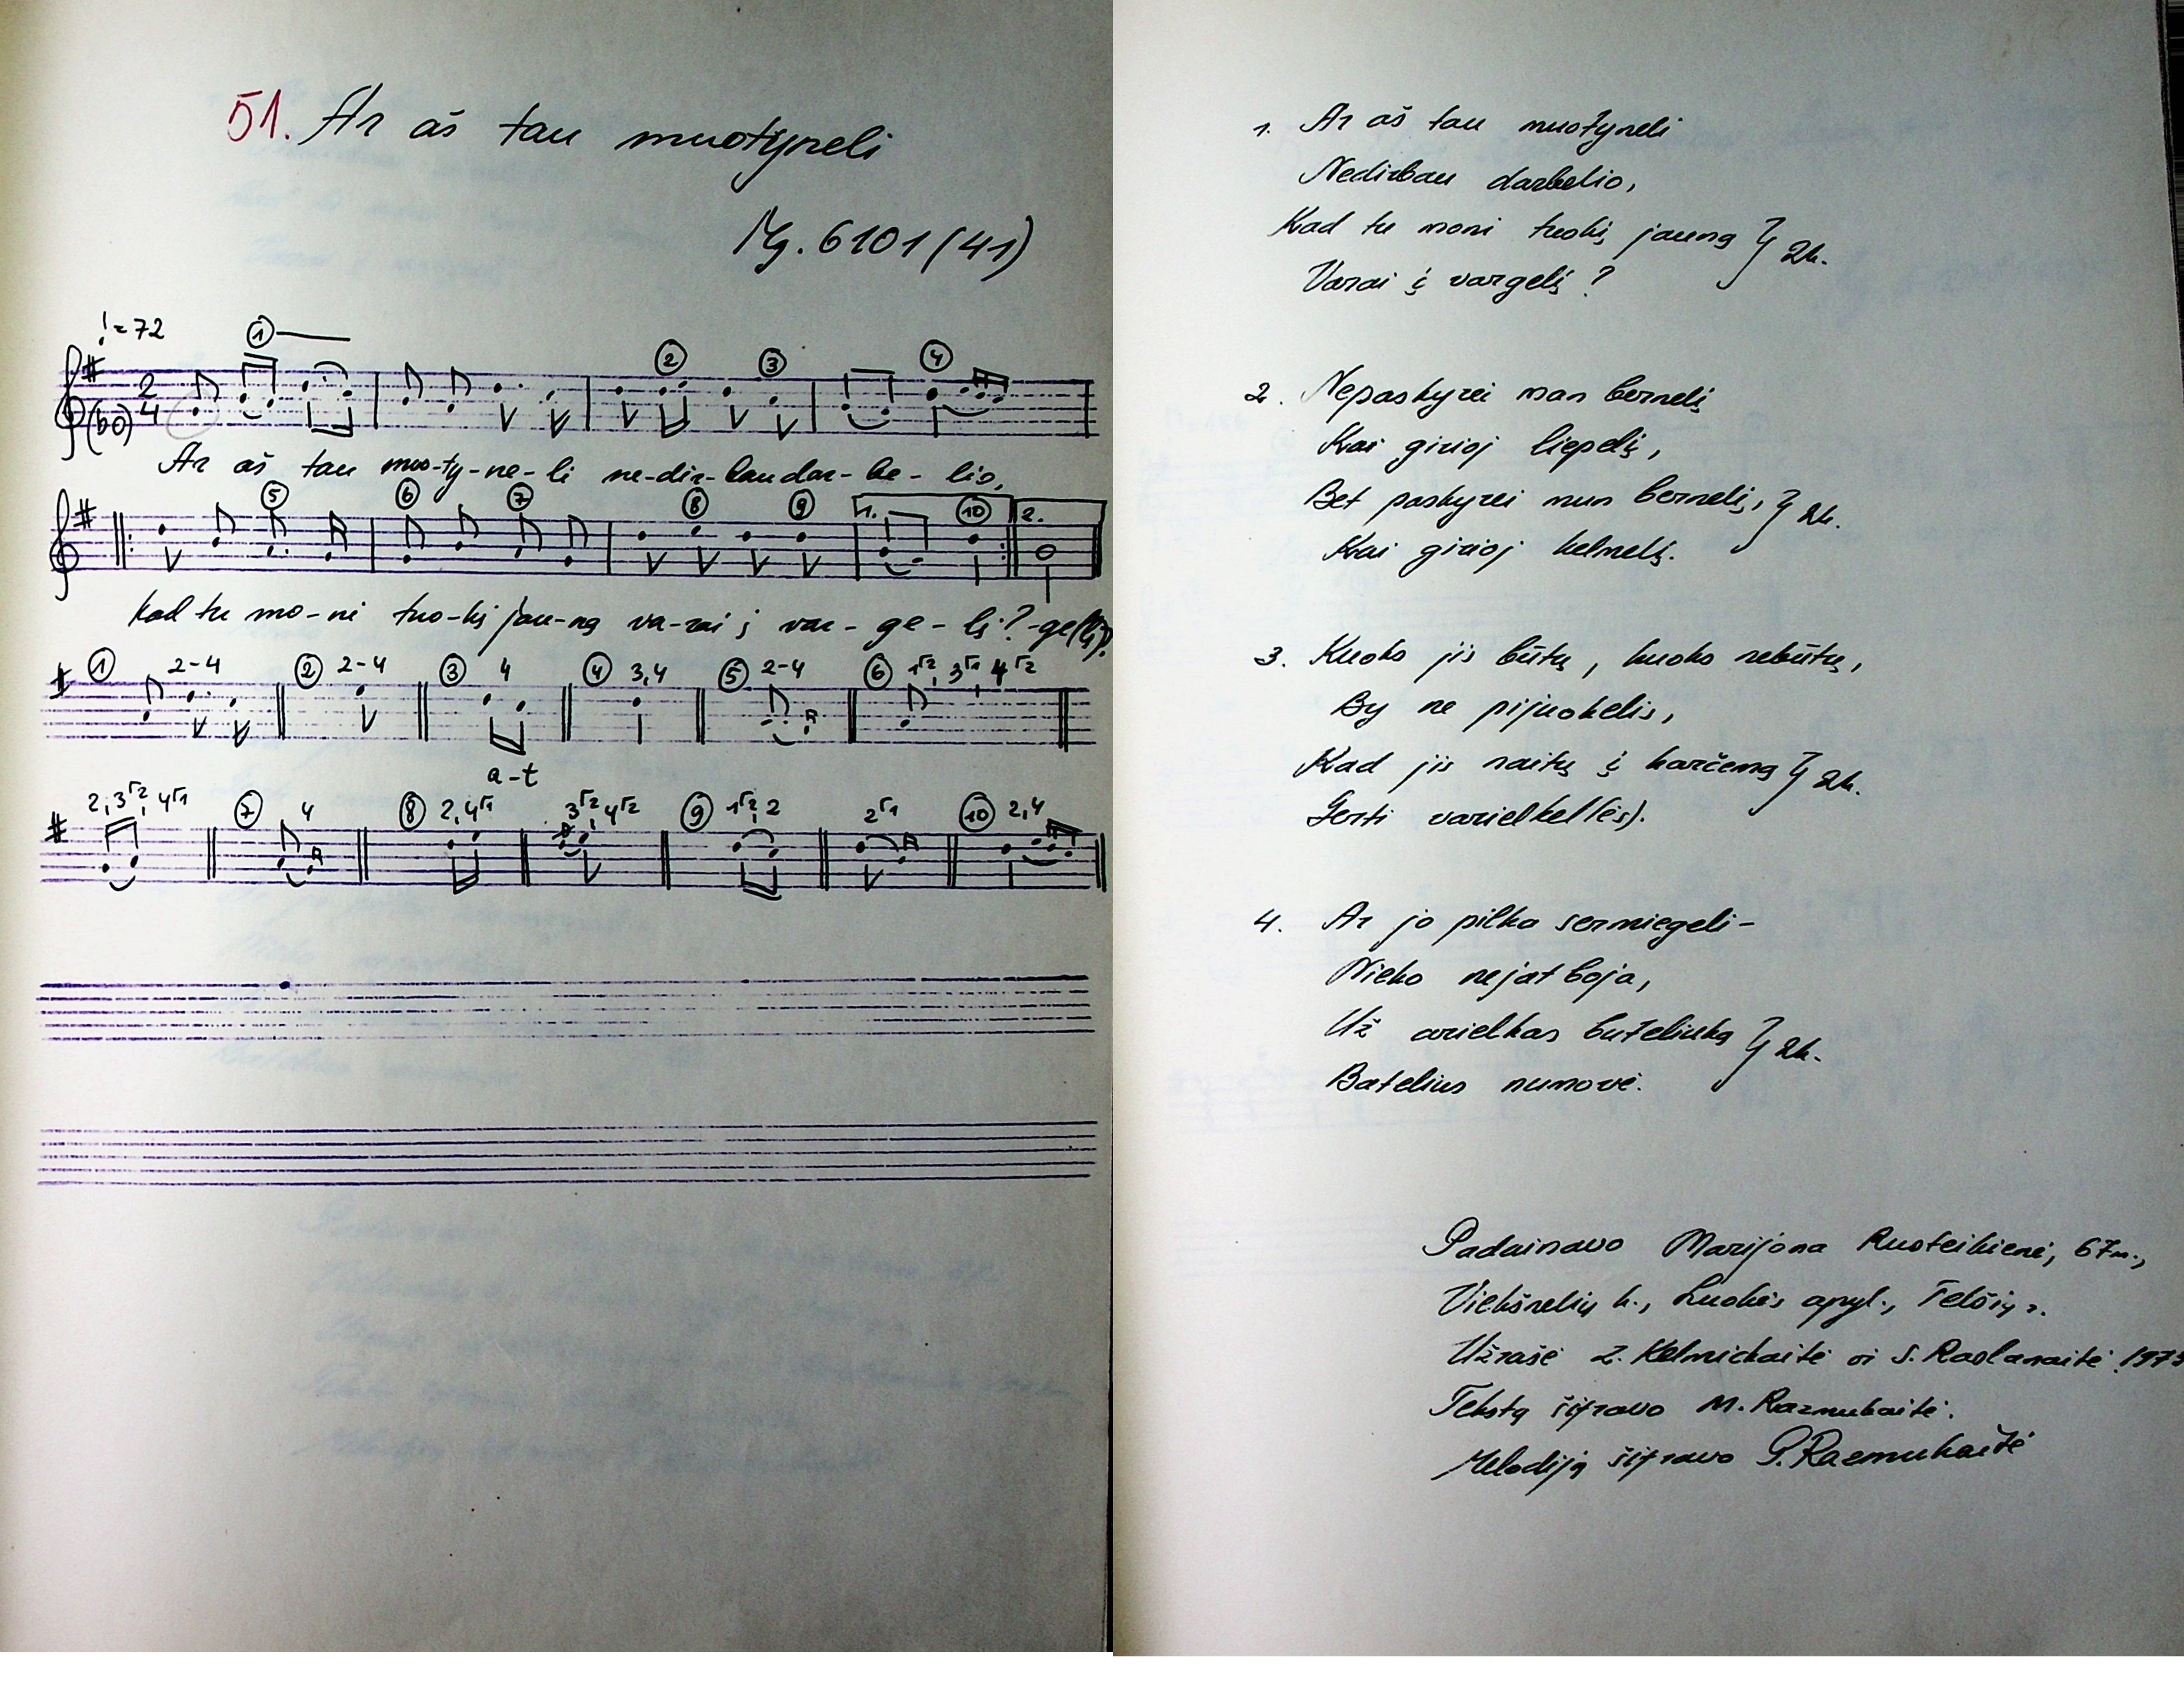 51. Ar aš tau muotyneli
Mg. 6101 (41)
! = 72
1
2
3
4
2
4
(bo)
Ar aš tau muo-ty-ne-li ne-dir-bau dar-be-lio,
5
6
7
8
9
1.
10
2.
Kad tu mo-ni tuo-kį jau-ną va-rai į var-ge-lį? -ge(lį)?
1 2-4 2 2-4 3 4 4 3,4 5 2-4 6 1r2, 3r1, 4r2
a-t
2, 3r2, 4r1 7 4 8 2, 4r1 3r2, 4r2 9 1r2, 2 2r1 10 2,4
1. Ar aš tau muotyneli
Nedirbau darbelio,
Kad tu moni tuokį jauną } 2k.
Varai į vargelį?
2. Nepaskyrei man bernelį
Kai girioj liepelį,
Bet paskyrei mun bernelį, } 2k.
Kai girioj kelmelį.
3. Kuoks jis būtų, kuoks nebūtų,
By ne pijuokelis,
Kad jis neitų į karčemą } 2k.
Gerti varielkel(ės).
4. Ar jo pilka sermiegeli-
Nieko nejatboja,
Už arielkas buteliuką } 2k.
Batelius numovė.
Padainavo Marijona Ruoteikienė, 67 m.,
Viekšnelių k., Luokės apyl., Telšių r.
Užrašė Z. Kelmickaitė ir S. Paslanaitė
Tekstą šifravo M. Razmukaitė.
Melodiją šifravo G. Razmukaitė